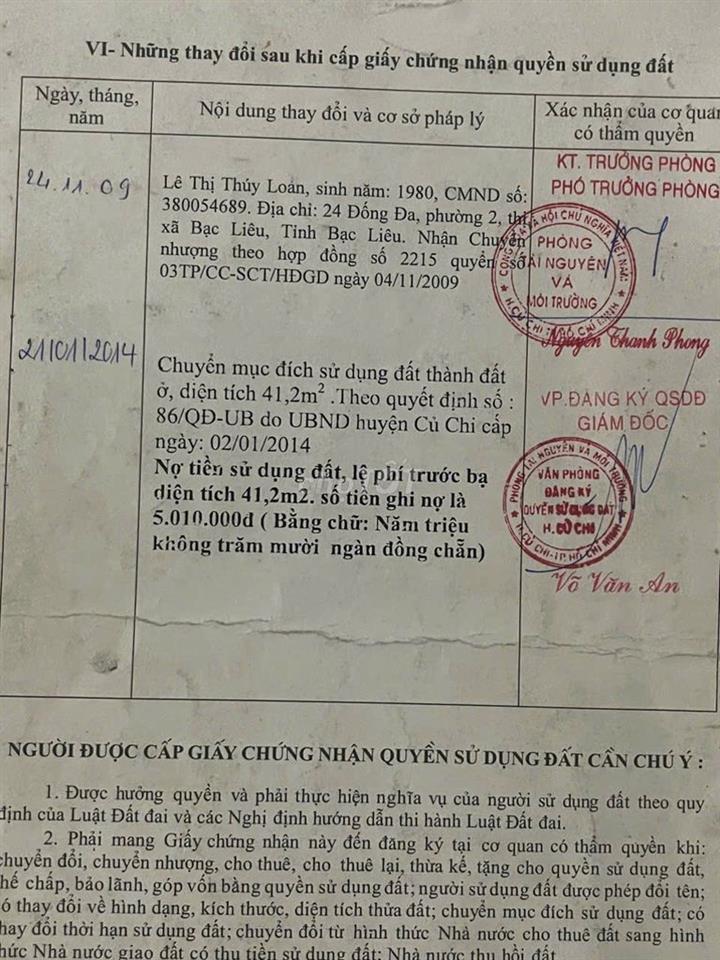 VI- Những thay đổi sau khi cấp giấy chứng nhận quyền sử dụng đất
Ngày, tháng,
năm
Nội dung thay đổi và cơ sở pháp lý
Xác nhận của cơ quan
có thẩm quyền
24.11.09
Lê Thị Thúy Loan, sinh năm: 1980, CMND số:
380054689. Địa chỉ: 24 Đống Đa, phường 2, thị
xã Bạc Liêu, Tỉnh Bạc Liêu. Nhận Chuyển
nhượng theo hợp đồng số 2215 quyển số
03TP/CC-SCT/HĐGD ngày 04/11/2009
KT. TRƯỞNG PHÒNG
PHÓ TRƯỞNG PHÒNG
PHÒNG
TÀI NGUYÊN
VÀ
MÔI TRƯỜNG
Nguyễn Thanh Phong
21/01/2014
Chuyển mục đích sử dụng đất thành đất
ở, diện tích 41,2m² .Theo quyết định số :
86/QĐ-UB do UBND huyện Củ Chi cấp
ngày: 02/01/2014
Nợ tiền sử dụng đất, lệ phí trước bạ
diện tích 41,2m2. số tiền ghi nợ là
5.010.000đ ( Bằng chữ: Năm triệu
không trăm mười ngàn đồng chẵn)
VP.ĐĂNG KÝ QSDĐ
GIÁM ĐỐC
VĂN PHÒNG
ĐĂNG KÝ
QUYỀN SỬ DỤNG ĐẤT
H. CỦ CHI
Võ Văn An
NGƯỜI ĐƯỢC CẤP GIẤY CHỨNG NHẬN QUYỀN SỬ DỤNG ĐẤT CẦN CHÚ Ý :
1. Được hưởng quyền và phải thực hiện nghĩa vụ của người sử dụng đất theo quy
định của Luật Đất đai và các Nghị định hướng dẫn thi hành Luật Đất đai.
2. Phải mang Giấy chứng nhận này đến đăng ký tại cơ quan có thẩm quyền khi:
chuyển đổi, chuyển nhượng, cho thuê, cho thuê lại, thừa kế, tặng cho quyền sử dụng đất,
hế chấp, bảo lãnh, góp vốn bằng quyền sử dụng đất; người sử dụng đất được phép đổi tên;
ó thay đổi về hình dạng, kích thước, diện tích thửa đất; chuyển mục đích sử dụng đất; có
hay đổi thời hạn sử dụng đất; chuyển đổi từ hình thức Nhà nước cho thuê đất sang hình
hức Nhà nước giao đất có thu tiền sử dụng đất; Nhà nước thu hồi đất